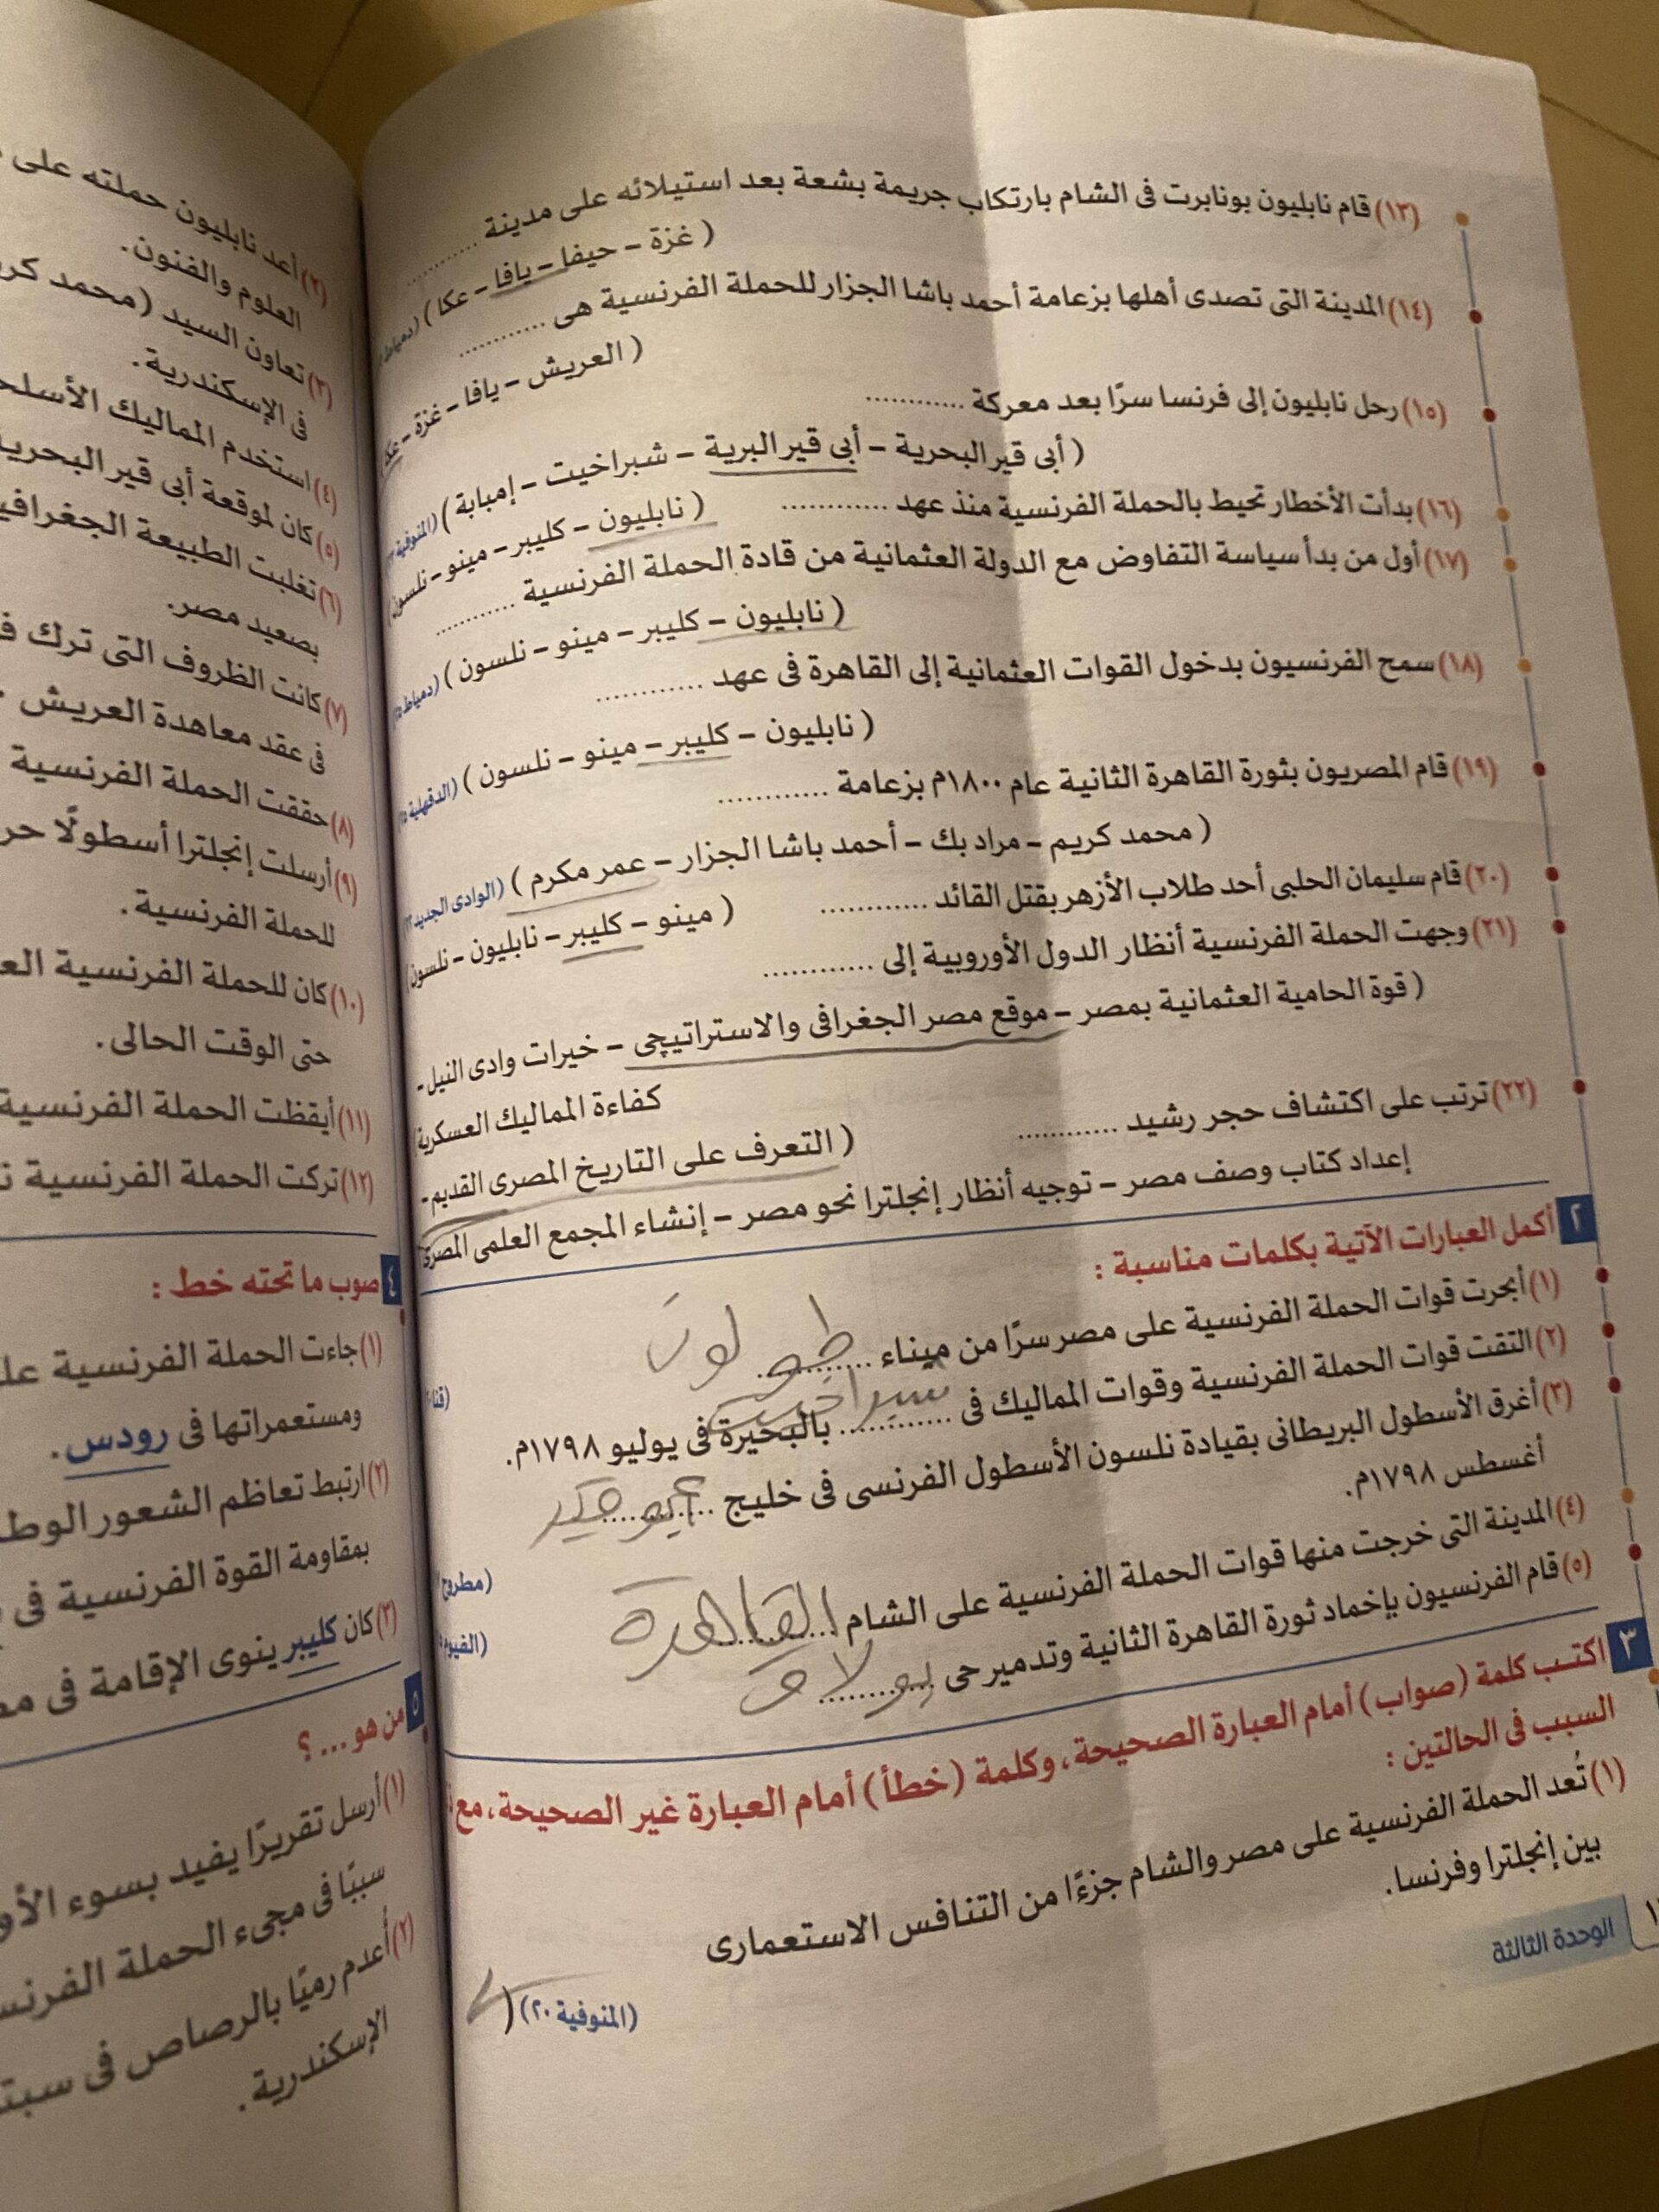 (١٣) قام نابليون بونابرت فى الشام بارتكاب جريمة بشعة بعد استيلائه على مدينة ............
( غزة – حيفا – يافا – عكا ) (دمياط
(١٤) المدينة التى تصدى أهلها بزعامة أحمد باشا الجزار للحملة الفرنسية هى ............
( العريش – يافا – غزة – عكا
(١٥) رحل نابليون إلى فرنسا سرًا بعد معركة ............
( أبى قير البحرية – أبى قير البرية – شبراخيت – إمبابة ) (المنوفية
(١٦) بدأت الأخطار تحيط بالحملة الفرنسية منذ عهد ............ ( نابليون – كليبر – مينو – نلسون)
(١٧) أول من بدأ سياسة التفاوض مع الدولة العثمانية من قادة الحملة الفرنسية ............
( نابليون – كليبر – مينو – نلسون ) (دمياط
(١٨) سمح الفرنسيون بدخول القوات العثمانية إلى القاهرة فى عهد ............
( نابليون – كليبر – مينو – نلسون ) (الدقهلية
(١٩) قام المصريون بثورة القاهرة الثانية عام ١٨٠٠م بزعامة ............
( محمد كريم – مراد بك – أحمد باشا الجزار – عمر مكرم ) (الوادى الجديد
(٢٠) قام سليمان الحلبى أحد طلاب الأزهر بقتل القائد ............ ( مينو – كليبر – نابليون – نلسون)
(٢١) وجهت الحملة الفرنسية أنظار الدول الأوروبية إلى ............
( قوة الحامية العثمانية بمصر – موقع مصر الجغرافى والاستراتيچى – خيرات وادى النيل –
كفاءة المماليك العسكرية)
(٢٢) ترتب على اكتشاف حجر رشيد ............ ( التعرف على التاريخ المصرى القديم –
إعداد كتاب وصف مصر – توجيه أنظار إنجلترا نحو مصر – إنشاء المجمع العلمى المصرى
٢ أكمل العبارات الآتية بكلمات مناسبة :
(١) أبحرت قوات الحملة الفرنسية على مصر سرًا من ميناء ............ طولون
(قنا
(٢) التقت قوات الحملة الفرنسية وقوات المماليك فى ............ بالبحيرة فى يوليو ١٧٩٨م.
(٣) أغرق الأسطول البريطانى بقيادة نلسون الأسطول الفرنسى فى خليج ............
أغسطس ١٧٩٨م.
(مطروح
(٤) المدينة التى خرجت منها قوات الحملة الفرنسية على الشام ............ القاهرة
(الفيوم
(٥) قام الفرنسيون بإخماد ثورة القاهرة الثانية وتدمير حى ............ بولاق
٣ اكتب كلمة (صواب) أمام العبارة الصحيحة، وكلمة (خطأ) أمام العبارة غير الصحيحة، مع
السبب فى الحالتين :
(١) تُعد الحملة الفرنسية على مصر والشام جزءًا من التنافس الاستعمارى
بين إنجلترا وفرنسا.
(المنوفية ٢٠) (
الوحدة الثالثة
(٢) أعد نابليون حملته على
العلوم والفنون.
(٣) تعاون السيد (محمد كر
فى الإسكندرية.
(٤) استخدم المماليك الأسلح
(٥) كان لموقعة أبى قير البحرية
(٦) تغلبت الطبيعة الجغرافي
بصعيد مصر.
(٧) كانت الظروف التى ترك
فى عقد معاهدة العريش
(٨) حققت الحملة الفرنسية
(٩) أرسلت إنجلترا أسطولًا حر
للحملة الفرنسية.
(١٠) كان للحملة الفرنسية الع
حتى الوقت الحالى.
(١١) أيقظت الحملة الفرنسية
(١٢) تركت الحملة الفرنسية
٤ صوب ما تحته خط :
(١) جاءت الحملة الفرنسية عل
ومستعمراتها فى رودس.
(٢) ارتبط تعاظم الشعور الوط
بمقاومة القوة الفرنسية فى
(٣) كان كليبر ينوى الإقامة فى م
٥ من هو ... ؟
(١) أرسل تقريرًا يفيد بسوء الأو
سببًا فى مجىء الحملة الفرنس
(٢) أُعدم رميًا بالرصاص فى سبت
الإسكندرية.